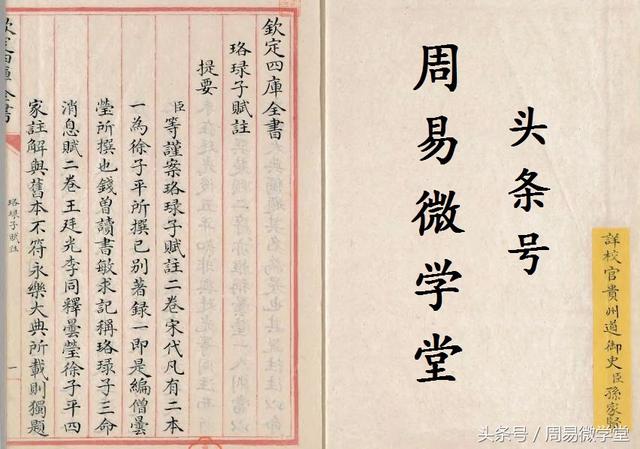 詳校官貴州道御史臣孫家賢
头条号
周易微学堂
欽定四庫全書
珞琭子賦註
提要
臣等謹案珞琭子賦註二卷宋代凡有二本
一為徐子平所撰已別著錄一即是編僧曇
瑩所撰也錢曾讀書敏求記稱珞琭子三命
消息賦二卷王廷光李同釋曇瑩徐子平四
家註解與舊本不符永樂大典所載則獨題
珞琭子賦註
一
头条号 / 周易微学堂